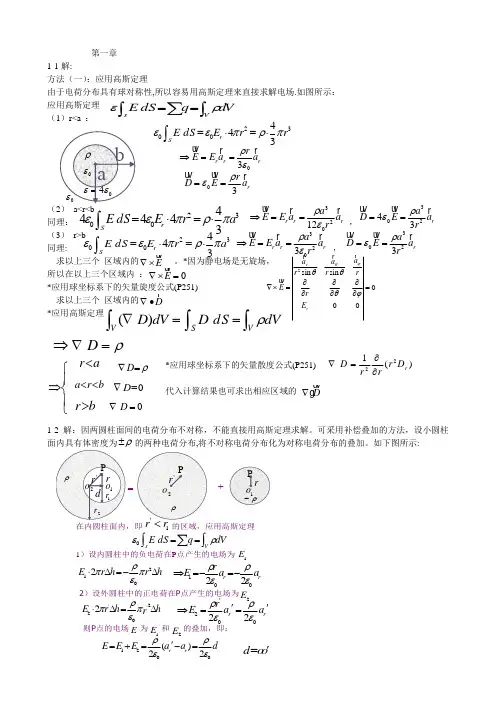 第一章
1-1 解:
方法（一）：应用高斯定理
由于电荷分布具有球对称性,所以容易用高斯定理来直接求解电场.如图所示:
应用高斯定理 ε∫_s E dS = ∑q = ∫_V ρdV
（1）r<a :
ρ ε₀ a b ε = 4ε₀ ε₀
ε₀∫_S E dS = ε₀E_r · 4πr² = ρ · 4/3 πr³
⇒ E = E_r a_r = ρr/3ε₀ a_r
D = ε₀E = ρr/3 a_r
（2） a<r<b
同理: 4ε₀∫_S E dS = 4ε₀E_r 4πr² = ρ · 4/3 πa³ ⇒ E = E_r a_r = ρa³/12ε₀r² a_r , D = 4ε₀E = ρa³/3r² a_r
（3） r>b
同理: ε₀∫_S E dS = ε₀E_r 4πr² = ρ · 4/3 πa³ ⇒ E = E_r a_r = ρa³/3ε₀r² a_r , D = ε₀E = ρa³/3r² a_r
求以上三个 区域内的 ∇×E 。*因为静电场是无旋场，
所以在以上三个区域内 : ∇×E = 0
*应用球坐标系下的矢量旋度公式(P251) ∇×E = | a_r/r²sinθ a_θ/rsinθ a_φ/r ; ∂/∂r ∂/∂θ ∂/∂φ ; E_r 0 0 | = 0
求以上三个 区域内的 ∇•D
*应用高斯定理 ∫_V (∇ D)dV = ∫_S D dS = ∫_V ρdV
⇒ ∇ D = ρ
⇒ { r<a ∇ D=ρ
a<r<b ∇ D=0
r>b ∇ D = 0
*应用球坐标系下的矢量散度公式(P251) ∇ D = 1/r² ∂/∂r (r²D_r)
代入计算结果也可求出相应区域的 ∇gD
1-2 解：因两圆柱面间的电荷分布不对称，不能直接用高斯定理求解。可采用补偿叠加的方法，设小圆柱
面内具有体密度为 ±ρ 的两种电荷分布,将不对称电荷分布化为对称电荷分布的叠加。如下图所示:
P r' r o₂ o₁ d r₁ r₂ ρ = P r' o₂ ρ + P r o₁ −ρ
在内圆柱面内，即 r < r₁ 的区域，应用高斯定理
ε₀∫_s E dS = ∑q = ∫_V ρdV
1）设内圆柱中的负电荷在P点产生的电场为 E₁
E₁ · 2πr∆h = −ρ/ε₀ πr²∆h ⇒ E₁ = −ρr/2ε₀ a_r = −ρ/2ε₀ a_r
2）设外圆柱中的正电荷在P点产生的电场为 E₂
E₂ · 2πr'∆h = ρ/ε₀ πr'²∆h ⇒ E₂ = ρr'/2ε₀ a_r' = ρ/2ε₀ a_r'
则P点的电场 E 为 E₁ 和 E₂ 的叠加，即:
E = E₁ + E₂ = ρ/2ε₀ (a_r' − a_r) = ρ/2ε₀ d d = oo'